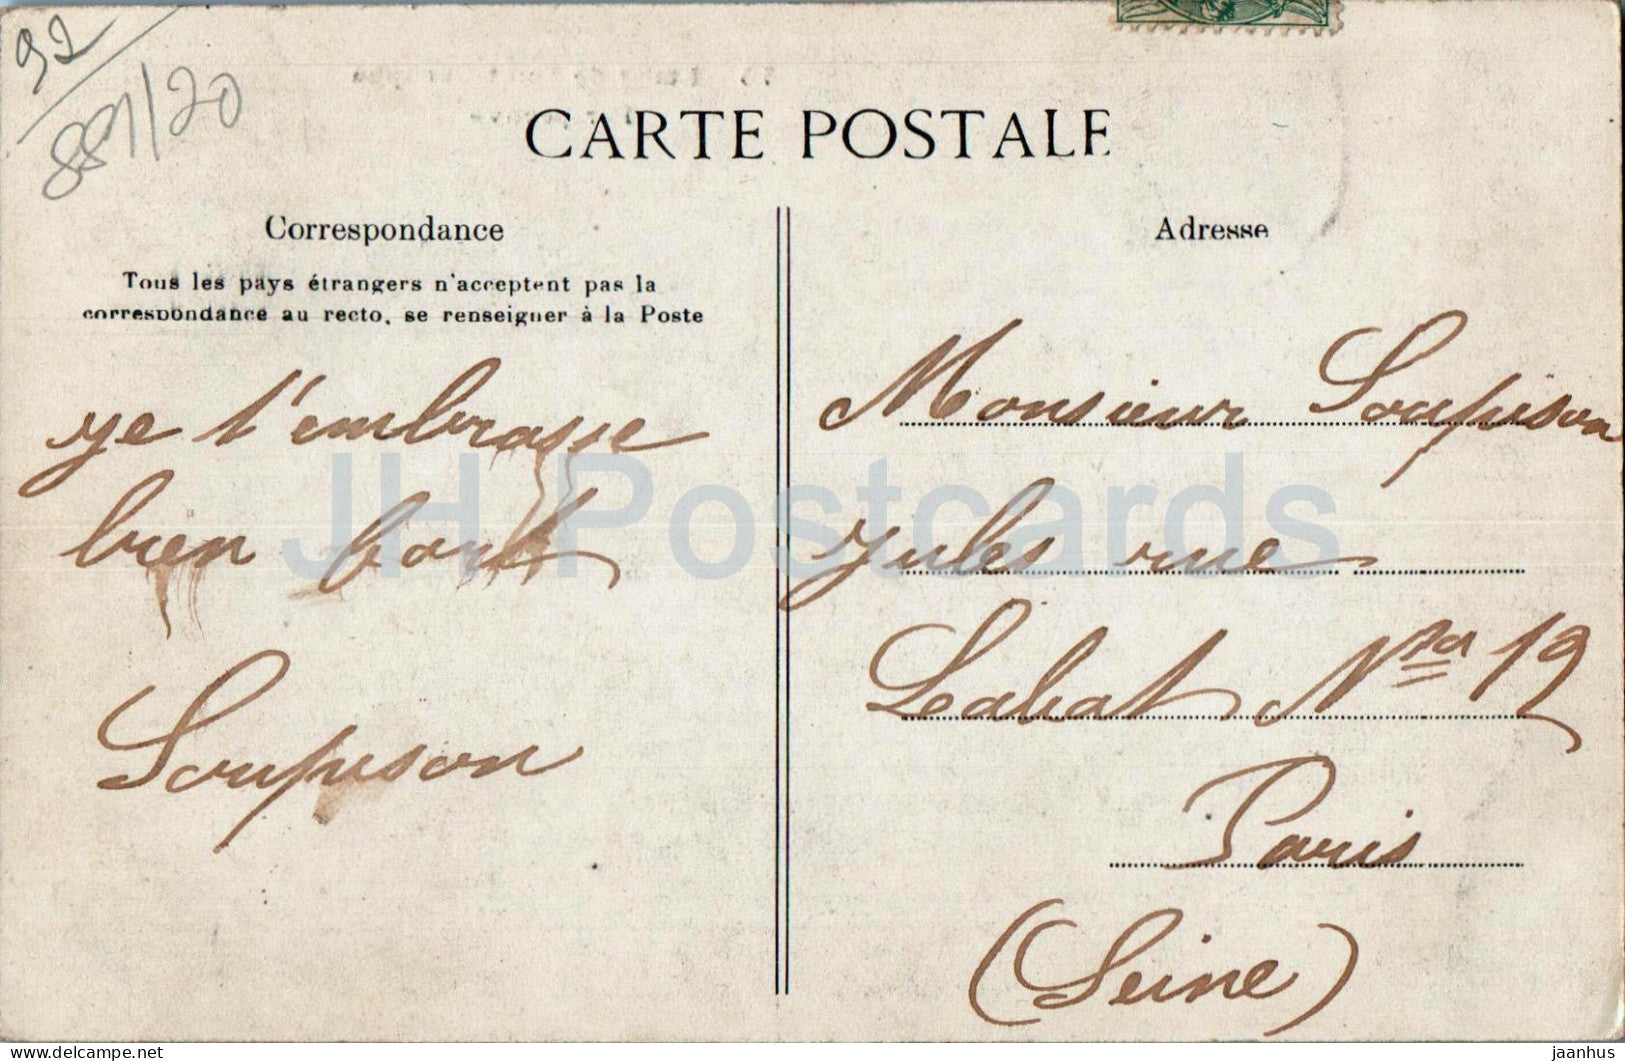 92
881/20
CARTE POSTALE
Correspondance
Tous les pays étrangers n'acceptent pas la
correspondance au recto, se renseigner à la Poste
je t'embrasse
bien fort
Soupison
Adresse
Monsieur Soupison
jules rue
Labat N 19
Paris
(Seine)
JH Postcards
https://www.delcampe.net
jaanhus